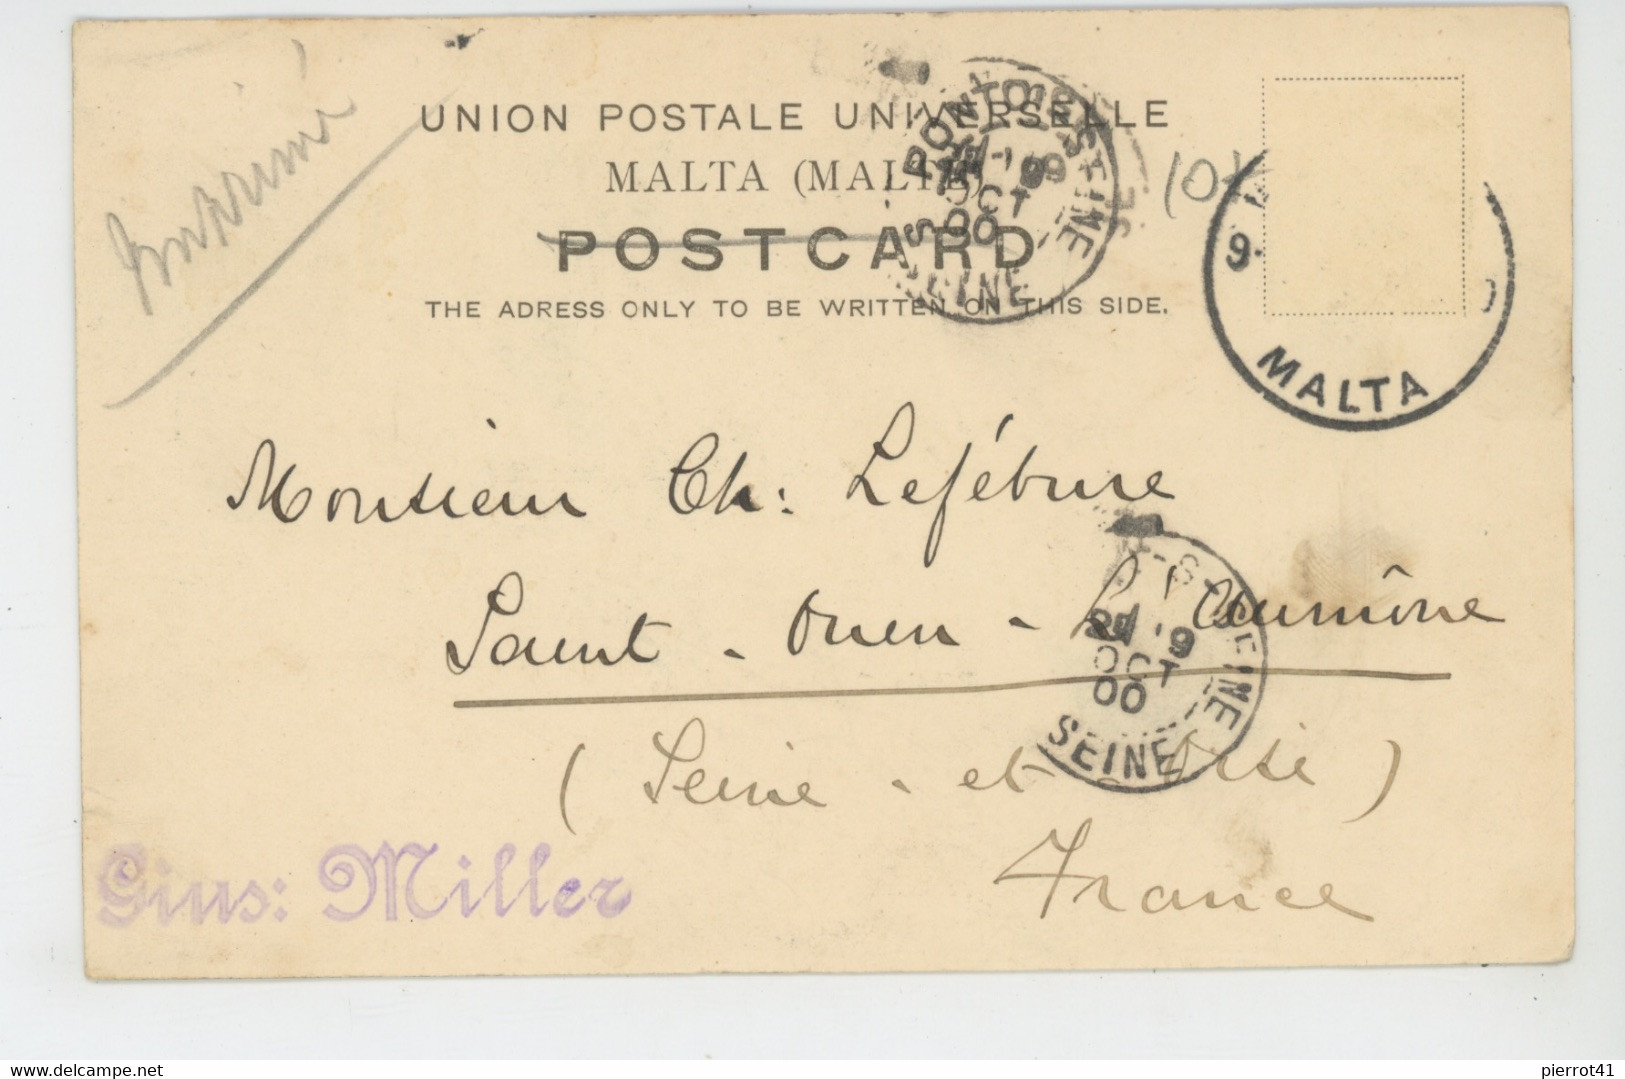 Imprimé
UNION POSTALE UNIVERSELLE
MALTA (MALTE)
POSTCARD
THE ADRESS ONLY TO BE WRITTEN ON THIS SIDE.
PONTOISE
OCT
00
SEINE
MALTA
Monsieur Ch: Lefébure
Saint-Ouen-l'Aumône
9
OCT
00
SEINE
(Seine-et-Oise)
France
Gius: Miller
pierrot41